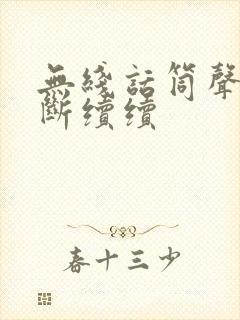 無綫話筒聲
斷續續
春十三少